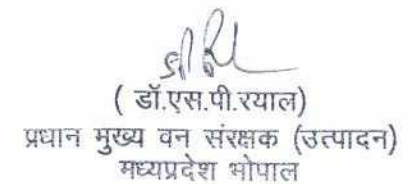 ( डॉ.एस.पी.रयाल)
प्रधान मुख्य वन संरक्षक (उत्पादन)
मध्यप्रदेश भोपाल